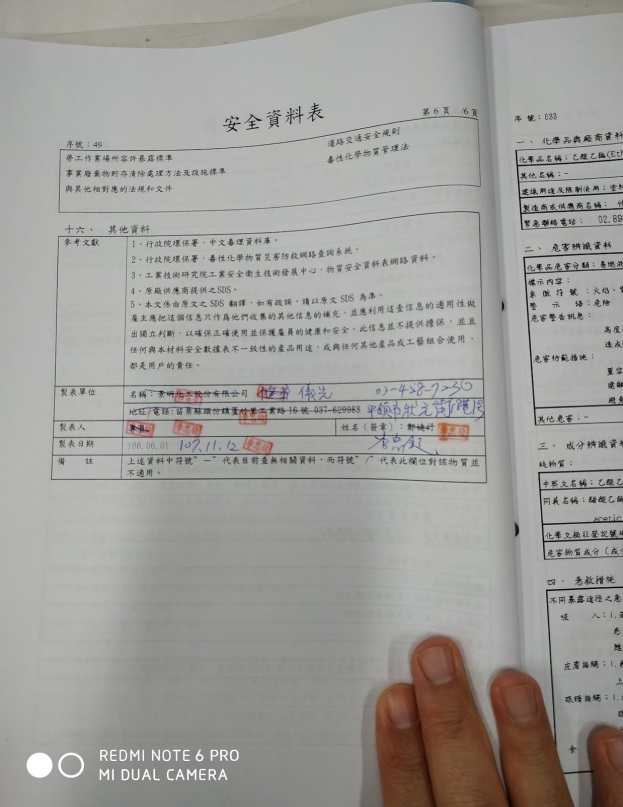 安全資料表
第 6 頁 /6 頁
序號：49
勞工作業場所容許暴露標準
道路交通安全規則
事業廢棄物貯存清除處理方法及設施標準
毒性化學物質管理法
與其他相對應的法規和文件
十六、 其他資料
參考文獻
1、行政院環保署，中文毒理資料庫。
2、行政院環保署，毒性化學物質災害防救網路查詢系統。
3、工業技術研究院工業安全衛生技術發展中心，物質安全資料表網路資料。
4、原廠供應商提供之SDS。
5、本文係由原文之 SDS 翻譯，如有疏誤，請以原文 SDS 為準。
雇主應把這個信息只作為他們收集的其他信息的補充，並應利用這壹信息的適用性做
出獨立判斷，以確保正確使用並保護雇員的健康和安全，此信息並不提供擔保，並且
任何與本材料安全數據表不一致性的產品用途，或與任何其他產品或工藝組合使用，
都是用戶的責任。
製表單位
名稱：景明化工股份有限公司
儀先
03-458-7230
地址/電話：苗栗縣頭份鎮蘆竹里工業路 16 號 037-629988
製表人
姓名（簽章）：
製表日期
106.06.01
107.11.12
備 註
上述資料中符號"－"代表目前查無相關資料，而符號"/"代表此欄位對該物質並
不適用。
序號：033
一、 化學品與廠商資料
化學品名稱：乙酸乙酯(Eth
其他名稱：-
建議用途及限制使用：
製造商或供應商名稱：
緊急聯絡電話： 02.89
二、 危害辨識資料
化學品危害分類：易燃液
標示內容：
象徵符號：火焰、
警 示 語：危險
危害警告訊息：
高度
造成
危害防範措施：
置容
遠離
其他危害：-
三、 成分辨識資料
純物質：
中英文名稱：乙酸乙
同義名稱：醋酸乙酯
acetic
危害物質成分（成分
四、 急救措施
不同暴露途徑之急
吸 人：1.
皮膚接觸：1.
上
眼睛接觸：1.
食
REDMI NOTE 6 PRO
MI DUAL CAMERA